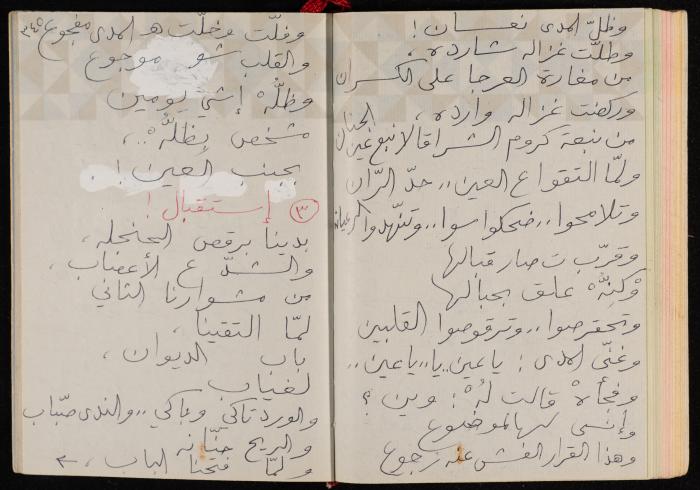 وظلّ المدى نعسان !
وطلّت غزاله شارده ،
من مغارة العرجا على الكسران
وركضت غزاله وارده ،
من نبعة كروم الشراقا لا نبع عين الجنان
ولمّا التقوا ع العين ،، حدّ الرّان
وتلامحوا ،، ضحكوا سوا ،، وتنّهدوا الرعيان
وقرّب ت صار قبالها
وكنّهْ علق بحبالها
وتحقرصوا ،، وترقوصوا القلبين
وغنّى المدى : ياعين ،، يا ،، ياعين ،،
وفجأهْ قالت لُهْ : وين ؟
وإنسى لها لموضوع
وهذا القرار الفش عنه رجوع
وفلّت وخلّت هـ المدى مفجوع ٣٤٥
والقلب شو موجوع
وظلّهْ إشي يومين
مشخص بظلّهْ ،،
بجنب العين !
٣ إستقبال !
بدينا برقص الحنجله ،
والشدّ ع الأعصاب ،
من مشوارنا الثاني
لمّا التقينا ،
باب الديوان ،
لغياب
والورد تاكي وباكي ،، والندى صبّاب
والريح حنّانه
ولمّا فتحنا الباب ،